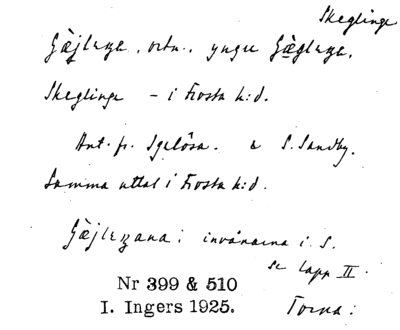 Skeglinge
Gæjleŋe, ortn., yngre Gæ̱gleŋe,
Skeglinge – i Frosta h:d.
Ant. fr. Igelösa. & S. Sandby.
Samma uttal i Frosta h:d.
Gæ̀jleŋana: invånarna i S.
se lapp II.
Nr 399 & 510
I. Ingers 1925.
Torna: